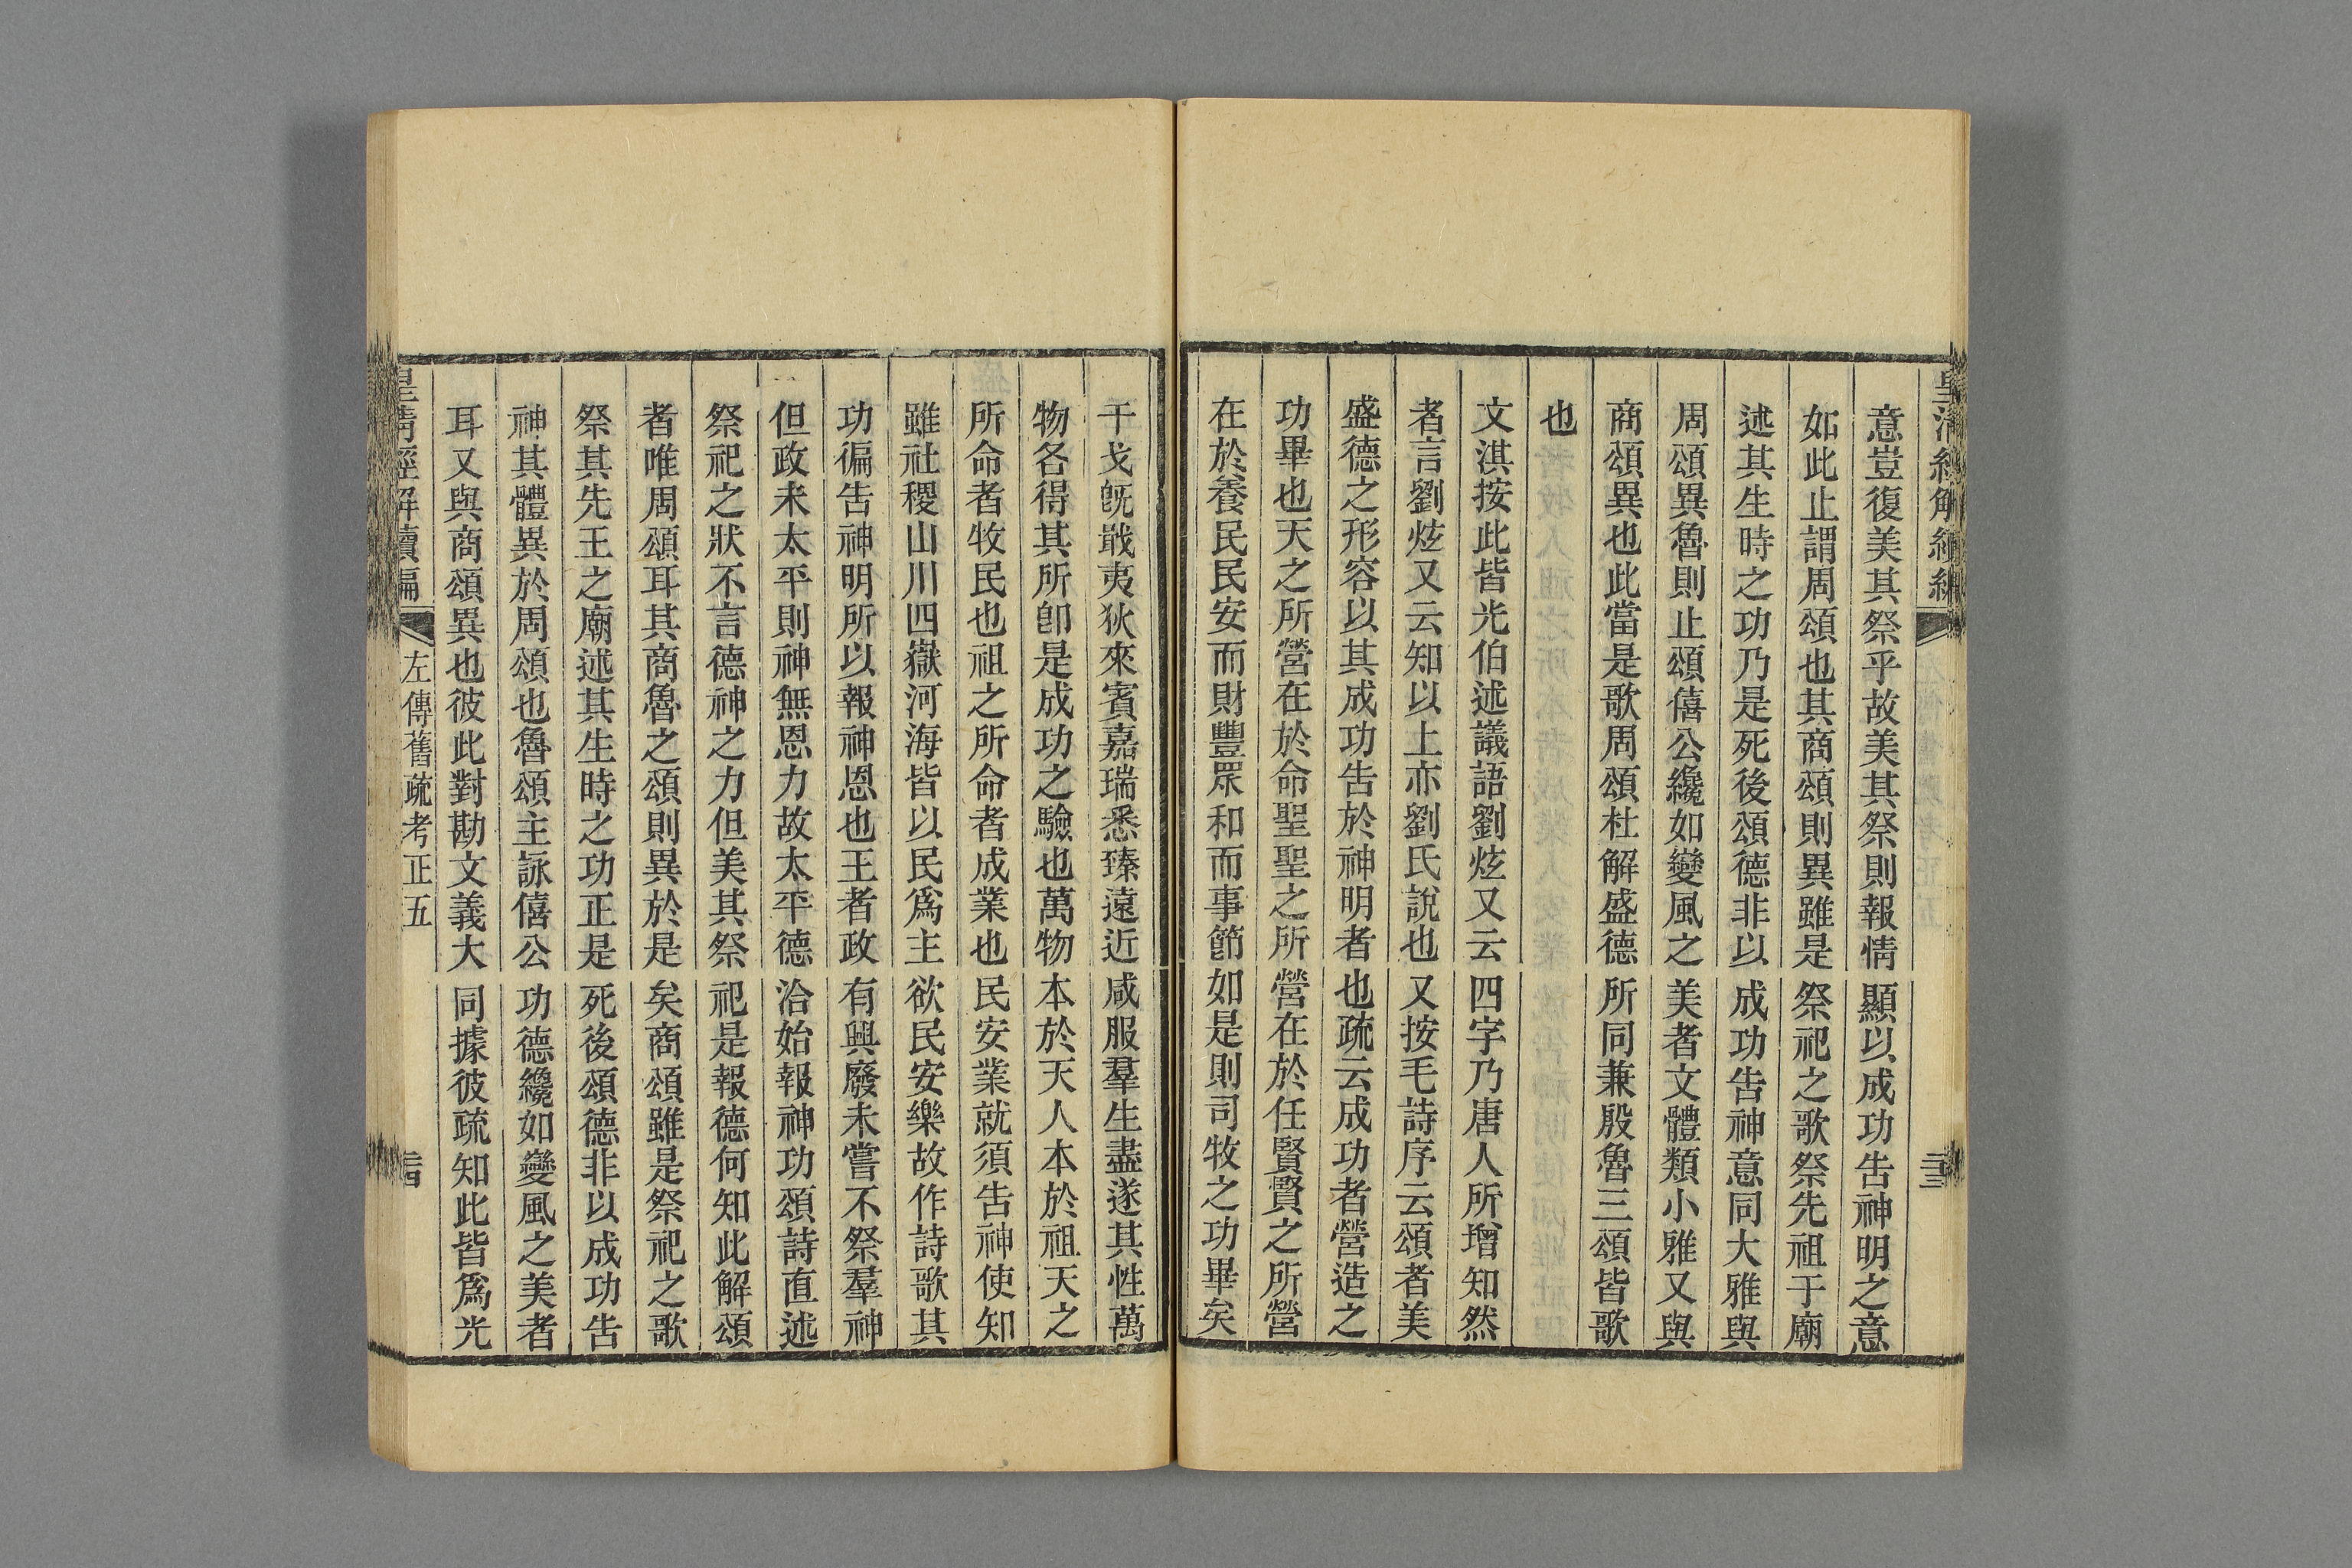 意豈復美其祭乎故美其祭則報情顯以成功告神明之意
如此止謂周頌也其商頌則異雖是祭祀之歌祭先祖于廟
述其生時之功乃是死後頌德非以成功告神意同大雅與
周頌異魯則止頌僖公纔如變風之美者文體類小雅又與
商頌異也此當是歌周頌杜解盛德所同兼殷魯三頌皆歌
也
文淇按此皆光伯述議語劉炫又云四字乃唐人所增知然
者言劉炫又云知以上亦劉氏說也又按毛詩序云頌者美
盛德之形容以其成功告於神明者也疏云成功者營造之
功畢也天之所營在於命聖聖之所營在於任賢賢之所營
在於養民民安而財豐眾和而事節如是則司牧之功畢矣
干戈旣戢夷狄來賓嘉瑞悉臻遠近咸服羣生盡遂其性萬
物各得其所卽是成功之驗也萬物本於天人本於祖天之
所命者牧民也祖之所命者成業也民安業就須告神使知
雖社稷山川四嶽河海皆以民爲主欲民安樂故作詩歌其
功徧告神明所以報神恩也王者政有興廢未嘗不祭羣神
但政未太平則神無恩力故太平德洽始報神功頌詩直述
祭祀之狀不言德神之力但美其祭祀是報德何知此解頌
者唯周頌耳其商魯之頌則異於是矣商頌雖是祭祀之歌
祭其先王之廟述其生時之功正是死後頌德非以成功告
神其體異於周頌也魯頌主詠僖公功德纔如變風之美者
耳又與商頌異也彼此對勘文義大同據彼疏知此皆爲光
皇清經解續編
左傳舊疏考正五